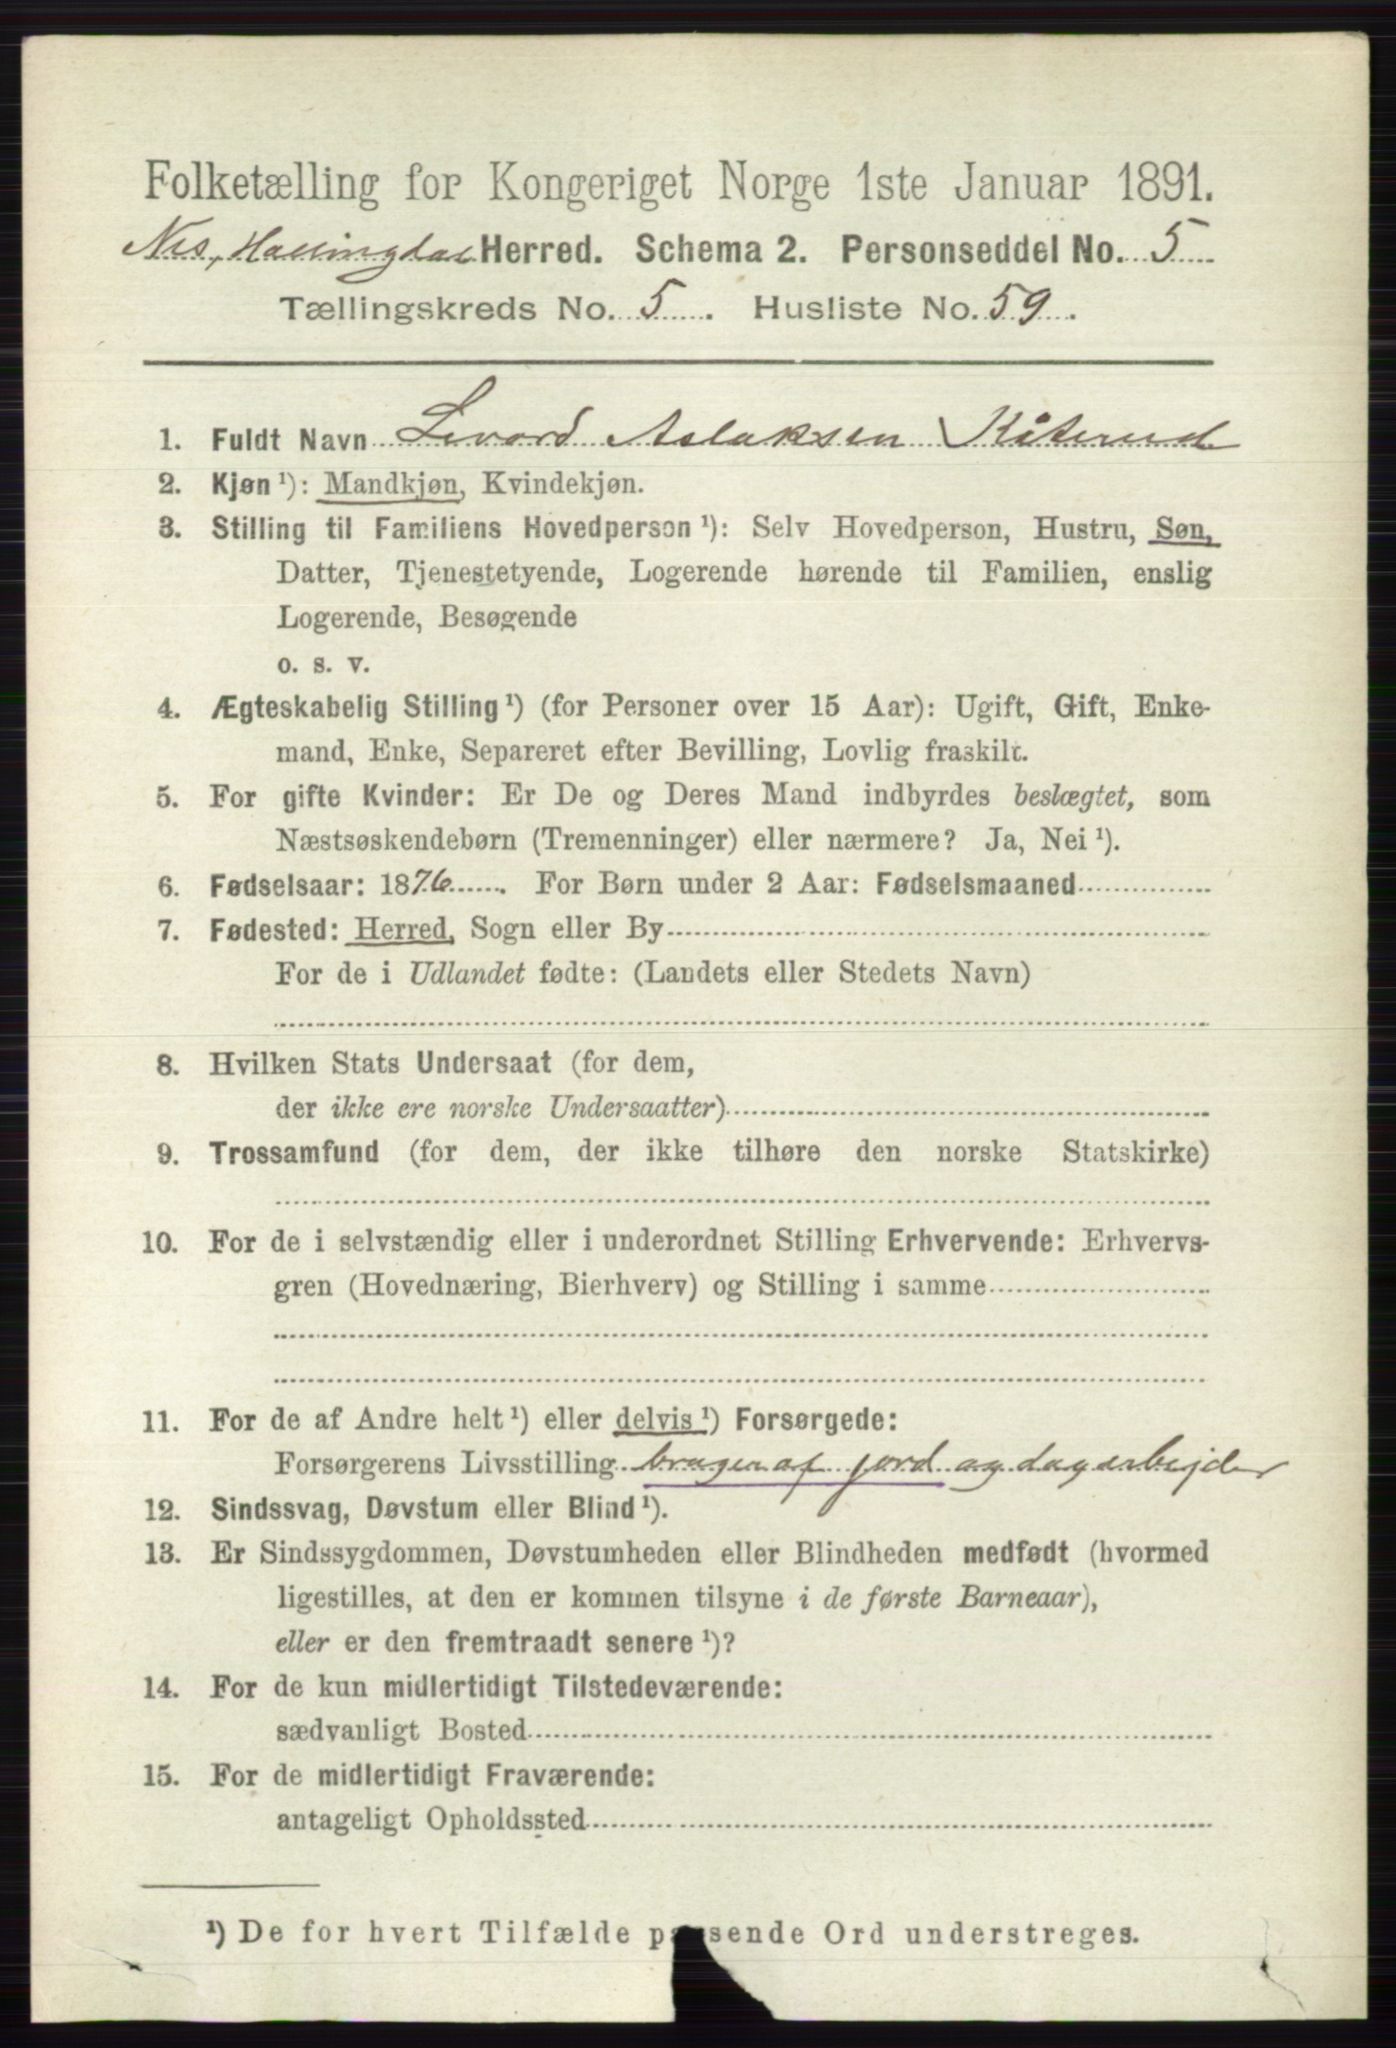 Folketælling for Kongeriget Norge 1ste Januar 1891.
Nes, Hallingdal Herred. Schema 2. Personseddel No. 5
Tællingskreds No. 5. Husliste No. 59.
1. Fuldt Navn Levord Aslaksen Kåterud
2. Kjøn ¹): Mandkjøn, Kvindekjøn.
3. Stilling til Familiens Hovedperson ¹): Selv Hovedperson, Hustru, Søn,
Datter, Tjenestetyende, Logerende hørende til Familien, enslig
Logerende, Besøgende
o. s. v.
4. Ægteskabelig Stilling ¹) (for Personer over 15 Aar): Ugift, Gift, Enke-
mand, Enke, Separeret efter Bevilling, Lovlig fraskilt.
5. For gifte Kvinder: Er De og Deres Mand indbyrdes beslægtet, som
Næstsøskendebørn (Tremenninger) eller nærmere? Ja, Nei ¹).
6. Fødselsaar: 1876. For Børn under 2 Aar: Fødselsmaaned
7. Fødested: Herred, Sogn eller By
For de i Udlandet fødte: (Landets eller Stedets Navn)
8. Hvilken Stats Undersaat (for dem,
der ikke ere norske Undersaatter)
9. Trossamfund (for dem, der ikke tilhøre den norske Statskirke)
10. For de i selvstændig eller i underordnet Stilling Erhvervende: Erhvervs-
gren (Hovednæring, Bierhverv) og Stilling i samme
11. For de af Andre helt ¹) eller delvis ¹) Forsørgede:
Forsørgerens Livsstilling bruger af jord og dagarbejder
12. Sindssvag, Døvstum eller Blind ¹).
13. Er Sindssygdommen, Døvstumheden eller Blindheden medfødt (hvormed
ligestilles, at den er kommen tilsyne i de første Barneaar),
eller er den fremtraadt senere ¹)?
14. For de kun midlertidigt Tilstedeværende:
sædvanligt Bosted
15. For de midlertidigt Fraværende:
antageligt Opholdssted
¹) De for hvert Tilfælde passende Ord understreges.